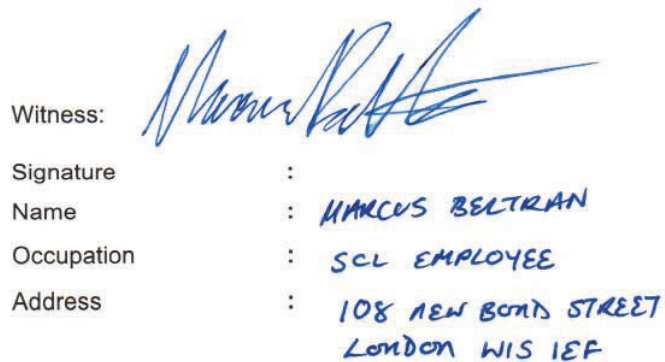 Witness:
Signature :
Name : MARCUS BELTRAN
Occupation : SCL EMPLOYEE
Address : 108 NEW BOND STREET
LONDON W1S 1EF